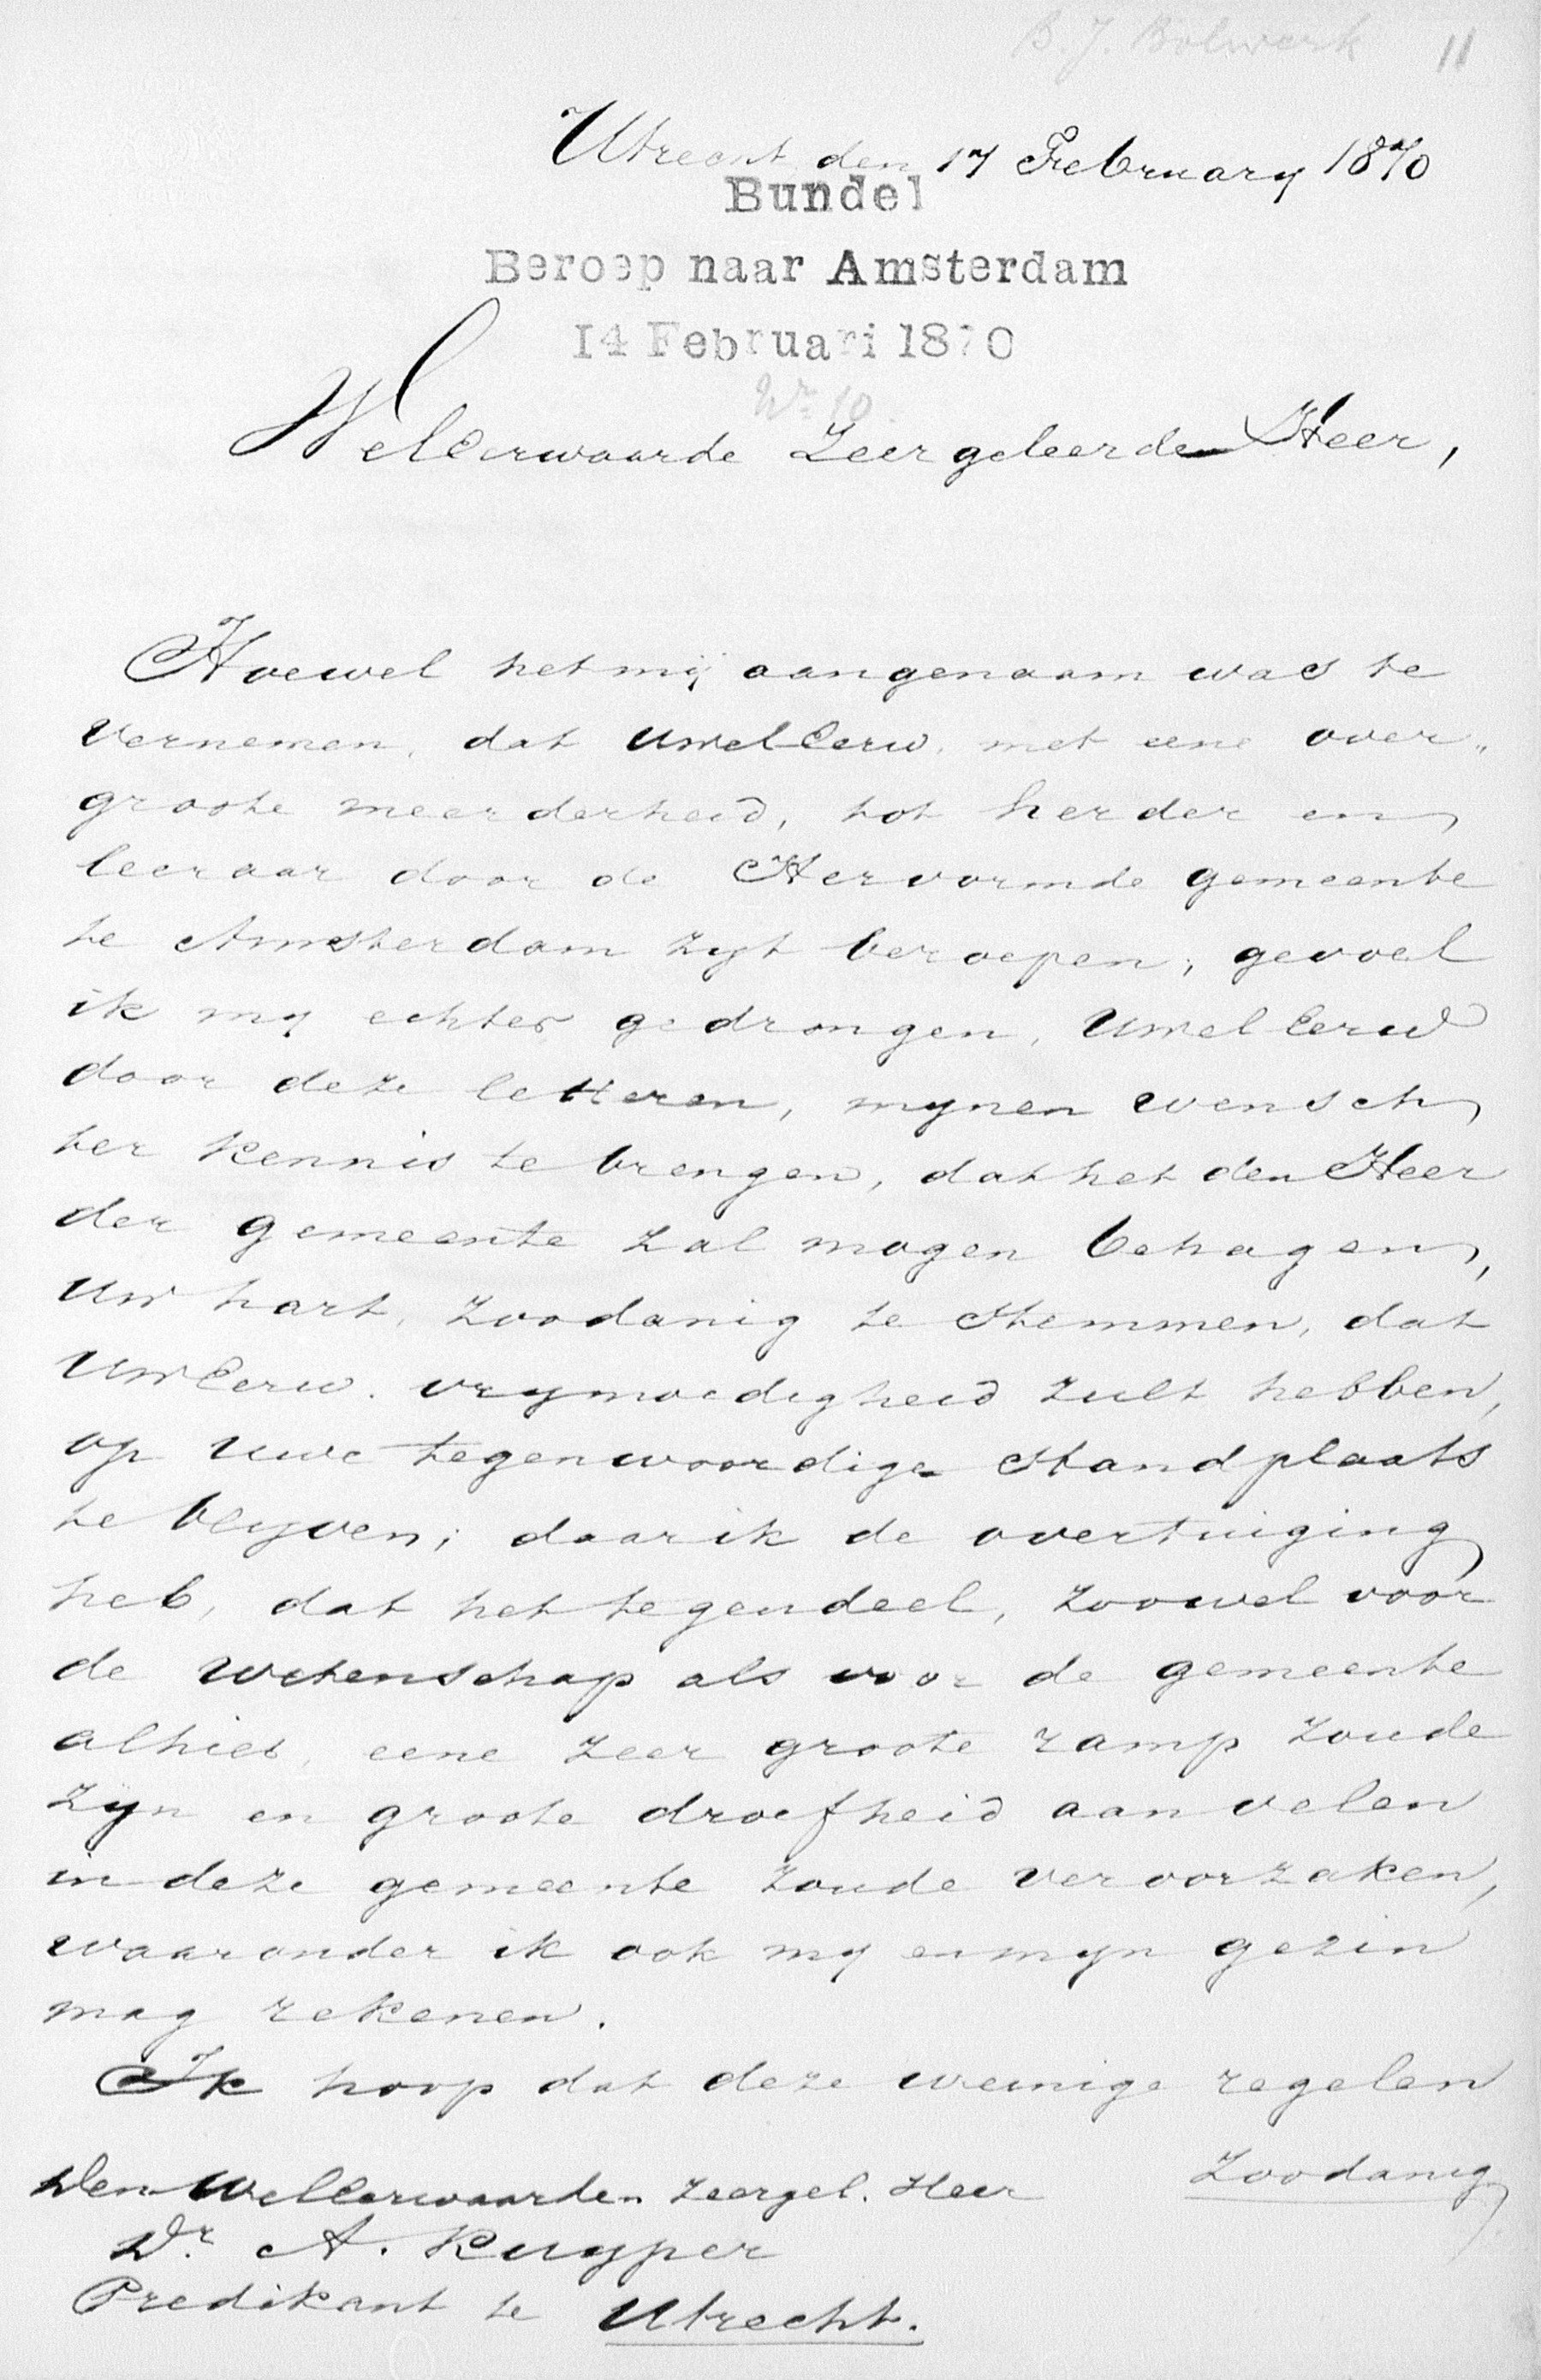 B. J. Bolwerk 11
Utrecht den 17 February 1870
Bundel
Beroep naar Amsterdam
14 Februari 1870
Nr 10
WelEerwaarde Zeergeleerde Heer,
Hoewel het mij aangenaam was te
vernemen, dat UwelEerw. met eene over„
groote meerderheid, tot herder en
leeraar door de Hervormde gemeente
te Amsterdam zijt beroepen, gevoel
ik my echter gedrongen, UwelEerw
door deze letteren, mynen wensch
ter kennis te brengen, dat het den Heer
der gemeente zal mogen behagen,
Uw hart, zoodanig te stemmen, dat
UwEerw. vrymoedigheid zult hebben,
op uwe tegenwoordige standplaats
te blyven; daar ik de overtuiging
heb, dat het tegendeel, zoowel voor
de wetenschap als voor de gemeente
alhier, eene zeer groote ramp zoude
zyn en groote droefheid aan velen
in deze gemeente zoude veroorzaken,
waaronder ik ook my en myn gezin
mag rekenen.
Ik hoop dat deze weinige regelen
zoodanig
Den WelEerwaarden Zeergel. Heer
Dr. A. Kuyper
Predikant te Utrecht.